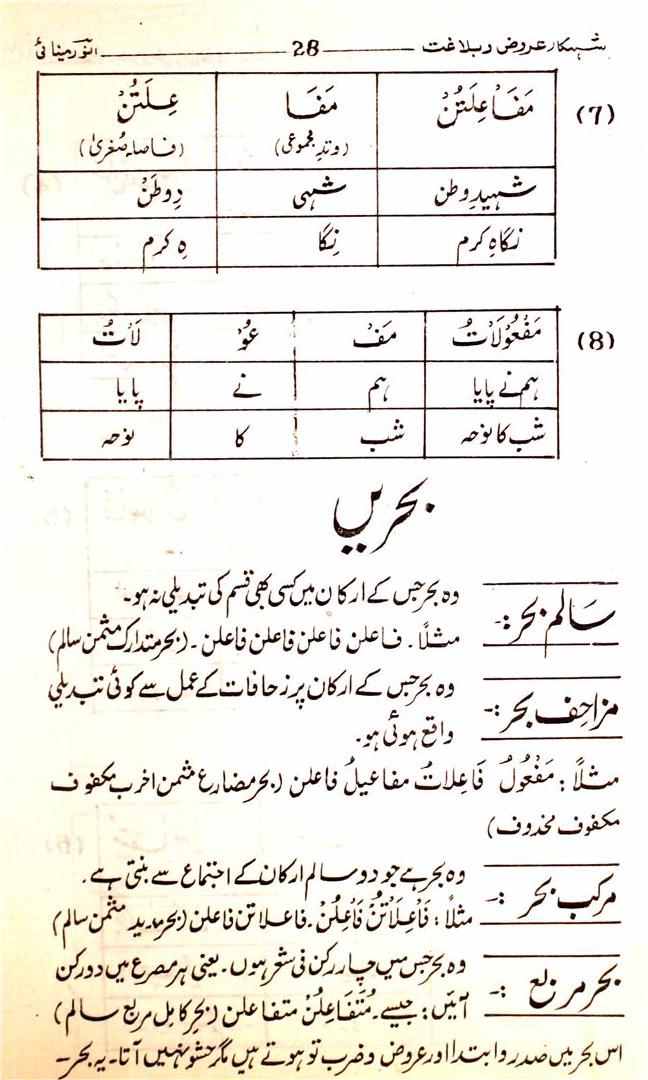 شہکار عروض و بلاغت 28 انور مینائی
(7) مَفَاعِلَتُنْ مَفَا عِلَتُنْ
(وتدِ مجموعی) (فاصلہ صُغریٰ)
شہیدِ وطن شہی دِ وطَنْ
نگاہِ کرم نِگا ہِ کرم
(8) مَفْعُوْلَاتُ مَفْ عُوْ لَاتُ
ہم نے پایا ہم نے پایا
شب کا نوحہ شب کا نوحہ
بحریں
سَالم بحر :- وہ بحر جس کے ارکان میں کسی بھی قسم کی تبدیلی نہ ہو۔
مثلاً۔ فاعلن فاعلن فاعلن فاعلن۔ (بحر متدارک مثمن سالم)
مزاحِف بحر :- وہ بحر جس کے ارکان پر زحافات کے عمل سے کوئی تبدیلی
واقع ہوئی ہو۔
مثلاً : مَفْعُولُ فَاعِلاتُ مفاعیلُ فاعلن (بحر مضارع مثمن اخرب مکفوف
مکفوف محذوف)
مرکب بحر :- وہ بحر ہے جو دو سالم ارکان کے اجتماع سے بنتی ہے۔
مثلاً : فَاْعِلَاتُنْ فَاْعِلُنْ۔ فاعلاتن فاعلن (بحر مدید مثمن سالم)
بحر مربع :- وہ بحر جس میں چار رکن فی شعر ہوں۔ یعنی ہر مصرع میں دو رکن
آئیں : جیسے۔ مُتَفَاعِلُنْ متفاعلن (بحرِ کامل مربع سالم)
اس بحر میں صدر و ابتدا اور عروض و ضرب تو ہوتے ہیں مگر حشو نہیں آتا۔ یہ بحر۔